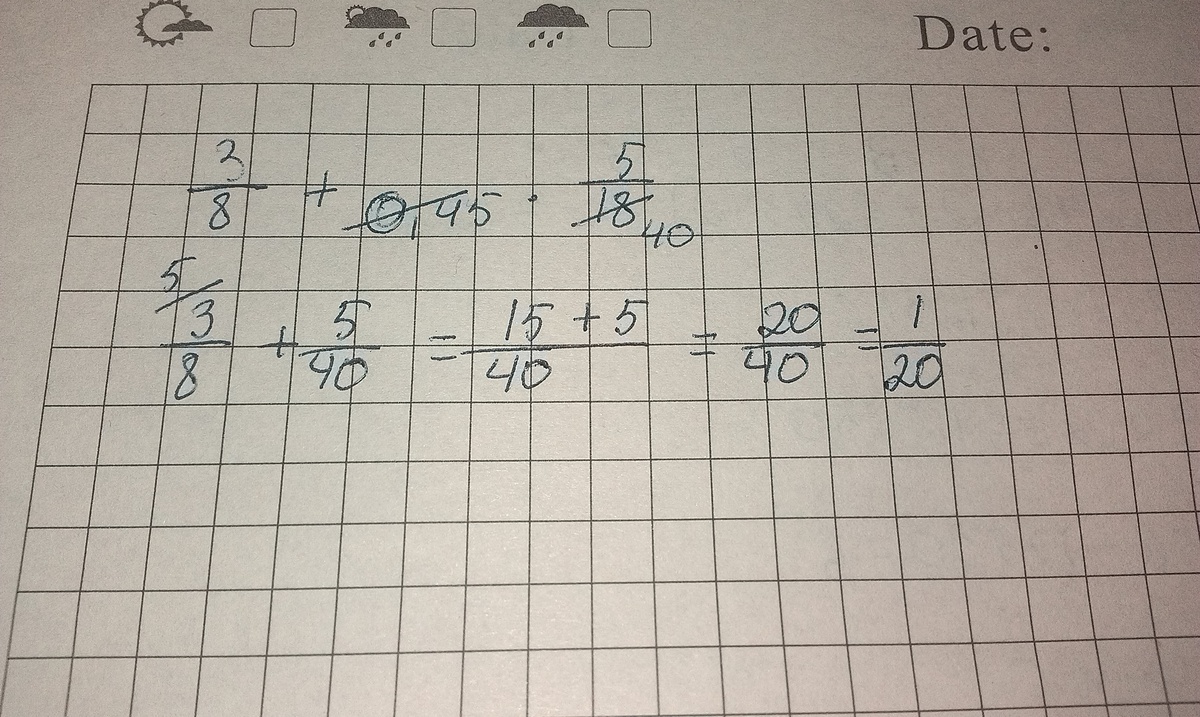 Date:
3/8 + 0,45 · 5/18 40
5/ 3/8 + 5/40 = (15 + 5)/40 = 20/40 = 1/20